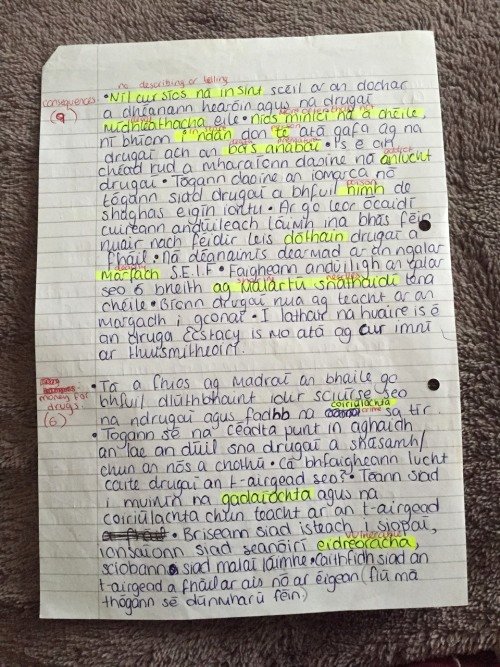 no describing or telling
consequences
• Níl cur síos ná insint scéil ar an dochar
(9)
a dhéanann hearóin agus na drugaí
mídhleathacha eile • Níos minicí ná a chéile,
ní bhíonn i ndán don té atá gafa ag na
drugaí ach an bás anabaí • Is é an
chéad rud a mharaíonn daoine ná anlucht
drugaí • Tógann daoine an iomarca nó
poison
tógann siad drugaí a bhfuil nimh de
shaghas éigin iontu • Ar go leor ócáidí
cuireann andúileach láimh ina bhás féin
nuair nach féidir leis dóthain drugaí a
fháil • Ná déanaimis dearmad ar an ngalar
marfach S.E.I.F • Faigheann andúiligh an galar
seo ó bheith ag malartú snáthaidí lena
chéile • Bíonn drugaí nua ag teacht ar an
margadh i gconaí • I láthair na huaire is é
an druga Ecstacy is mó atá ag cur imní
ar thuismitheoirí.
money for
drugs
(6)
• Tá a fhios ag madraí an bhaile go
bhfuil dlúthbhaint idir sciúirse seo
na ndrugaí agus fadhb na coiriúlachta sa tír
crime
• Tógann sé na céadta punt in aghaidh
an lae an dúil sna drugaí a shásamh/
chun an nós a chothú • Cá bhfaigheann lucht
caite drugaí an t-airgead seo? • Téann siad
i muinín na gadaíochta agus na
coiriúlachta chun teacht ar an t-airgead
• Briseann siad isteach i siopaí,
ionsaíonn siad seanóirí eidreoracha,
sciobann siad málaí láimhe • Caithfidh siad an
t-airgead a fháil ar ais nó ar éigean (fiú má
thógann sé dúnmharú féin)